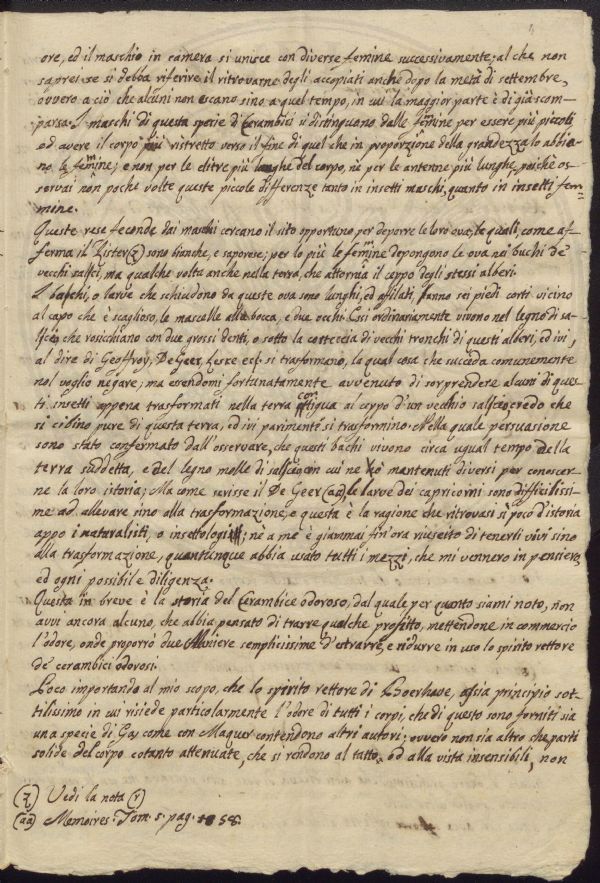 ore, ed il maschio in camera si unisce con diverse femine successivamente; al che non
saprei se si debba riferire il ritrovarne degli accopiati anche dopo la metà di settembre,
ovvero a ciò che alcuni non escano sino a quel tempo, in cui la maggior parte è di già scom-
parsa. I maschi di questa spezie di Cerambici si distinguono dalle femmine per essere più piccoli
ed avere il corpo più ristretto verso il fine di quel che in proporzione della grandezza lo abbia-
no le femmine; e non per le elitre più lunghe del corpo, nè per le antenne più lunghe, poichè os-
servai non poche volte queste picole differenze tanto in insetti maschi, quanto in insetti fem-
mine.
Queste rese feconde dai maschi cercano il sito opportuno per deporre le loro ova, le quali, come af-
ferma il Lister (z) sono bianche, e saporese; per lo più le femmine depongono le ova nei buchi de'
vecchi salici, ma qualche volta anche nella terra, che attornia il ceppo degli stessi alberi.
I bachi, o larve che schiudono da queste ova sono lunghi, ed affilati, hanno sei piedi corti vicino
al capo che è scaglioso, le mascelle alla bocca, e due occhi. Essi ordinariamente vivono nel legno di sa-
lice che rosicchiano con due grossi denti, o sotto la corteccia di vecchi tronchi di questi alberi, ed ivi,
al dire di Geoffroy, De Geer, Leske ecc. si trasformano, la qual cosa che succeda comunemente
nol voglio negare; ma essendomi fortunatamente avvenuto di sorprendere alcuni di ques-
ti insetti appena trasformati nella terra contigua al ceppo d'un vecchio salice credo che
si cibino pure di questa terra, ed ivi parimenti si trasformino. Nella quale persuasione
sono stato confermato dall'osservare, che questi bachi vivono circa ugual tempo della
terra suddetta, e del legno molle di salice con cui ne ho mantenuti diversi per conoscer-
ne la loro istoria; Ma come scrisse il De Geer (aa) le larve dei capricorni sono difficilissi-
me ad allevare sino alla trasformazione, e questa è la ragione che ritrovasi sì poco d'istoria
appo i naturalisti, o insettologi; nè a me è giammai fin'ora riuscito di tenerli vivi sino
alla trasformazione, quantunque abbia usato tutti i mezzi, che mi vennero in pensiero,
ed ogni possibile diligenza.
Questa in breve è la storia del Cerambice odoroso, dal quale per quanto siami noto, non
avvi ancora alcuno, che abbia pensato di trarre qualche profitto, mettendone in commercio
l'odore, onde proporrò due Maniere semplicissime d'estrarre, e ridurre in uso lo spirito rettore
de' cerambici odorosi.
Poco importando al mio scopo, che lo spirito rettore di Boerhave, ossia principio sot-
tilissimo in cui risiede particolarmente l'odore di tutti i corpi, che di questo sono forniti sia
una specie di Gas come con Maquer contendono altri autori; ovvero non sia altro che parti
solide del corpo cotanto attenuate, che si rendono al tatto, ed alla vista insensibili, non
(z) Vedi la nota (r)
(aa) Memoires. Tom. 5. pag. 58.